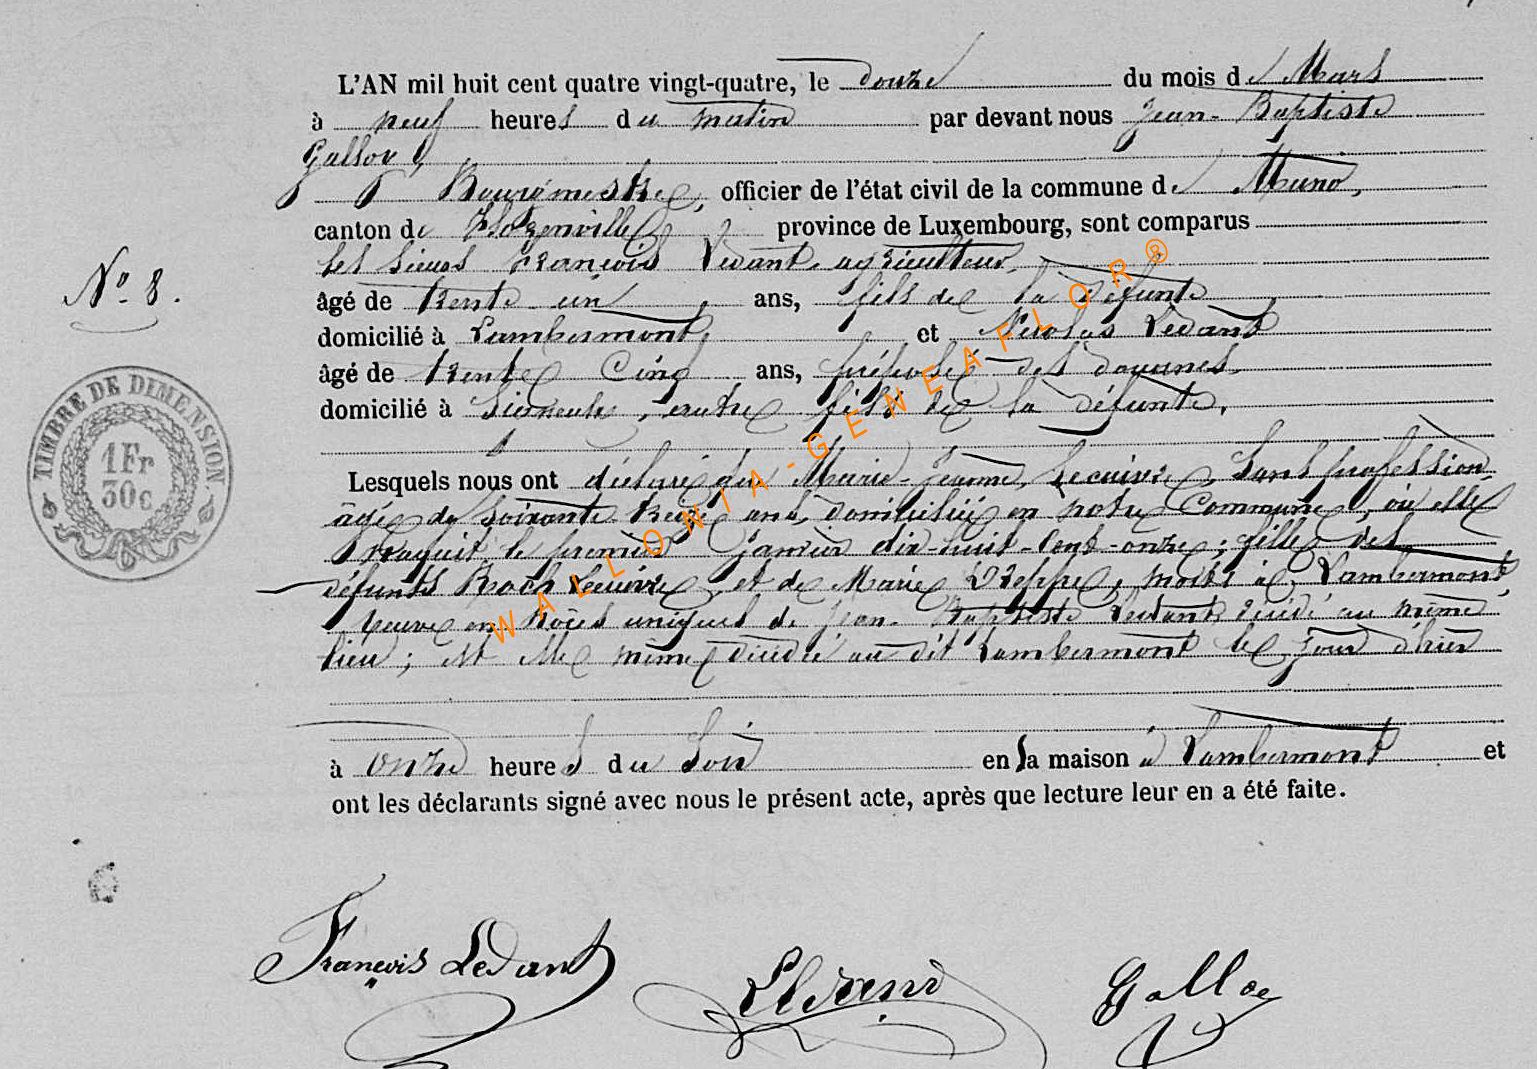 L'AN mil huit cent quatre vingt-quatre, le douze du mois de Mars
à neuf heures du matin par devant nous Jean-Baptiste
Galloy,
Bourgmestre, officier de l'état civil de la commune de Muno,
canton de Florenville province de Luxembourg, sont comparus
les sieurs François Ledant, agriculteur,
âgé de trente un ans, fils de la défunte
domicilié à Lambermont, et Nicolas Ledant
âgé de trente cinq ans, préposé des douanes,
domicilié à , autre fils de la défunte,
Lesquels nous ont déclaré que Marie-Jeanne Lecuivre, sans profession
âgée de soixante treize ans, domiciliée en notre Commune, où elle
naquit le premier Janvier dix-huit-cent-onze; fille des
défunts Roch Lecuivre et de Marie, morts à Lambermont,
veuve en noces uniques de Jean-Baptiste Ledant décédé au même
lieu; est elle même décédée au dit Lambermont le jour d'hier
à onze heures du soir en sa maison à Lambermont et
ont les déclarants signé avec nous le présent acte, après que lecture leur en a été faite.
No 8.
TIMBRE DE DIMENSION.
1 Fr
30c
WALLONIA-GENEAFLOR®
François Ledant
Galloy